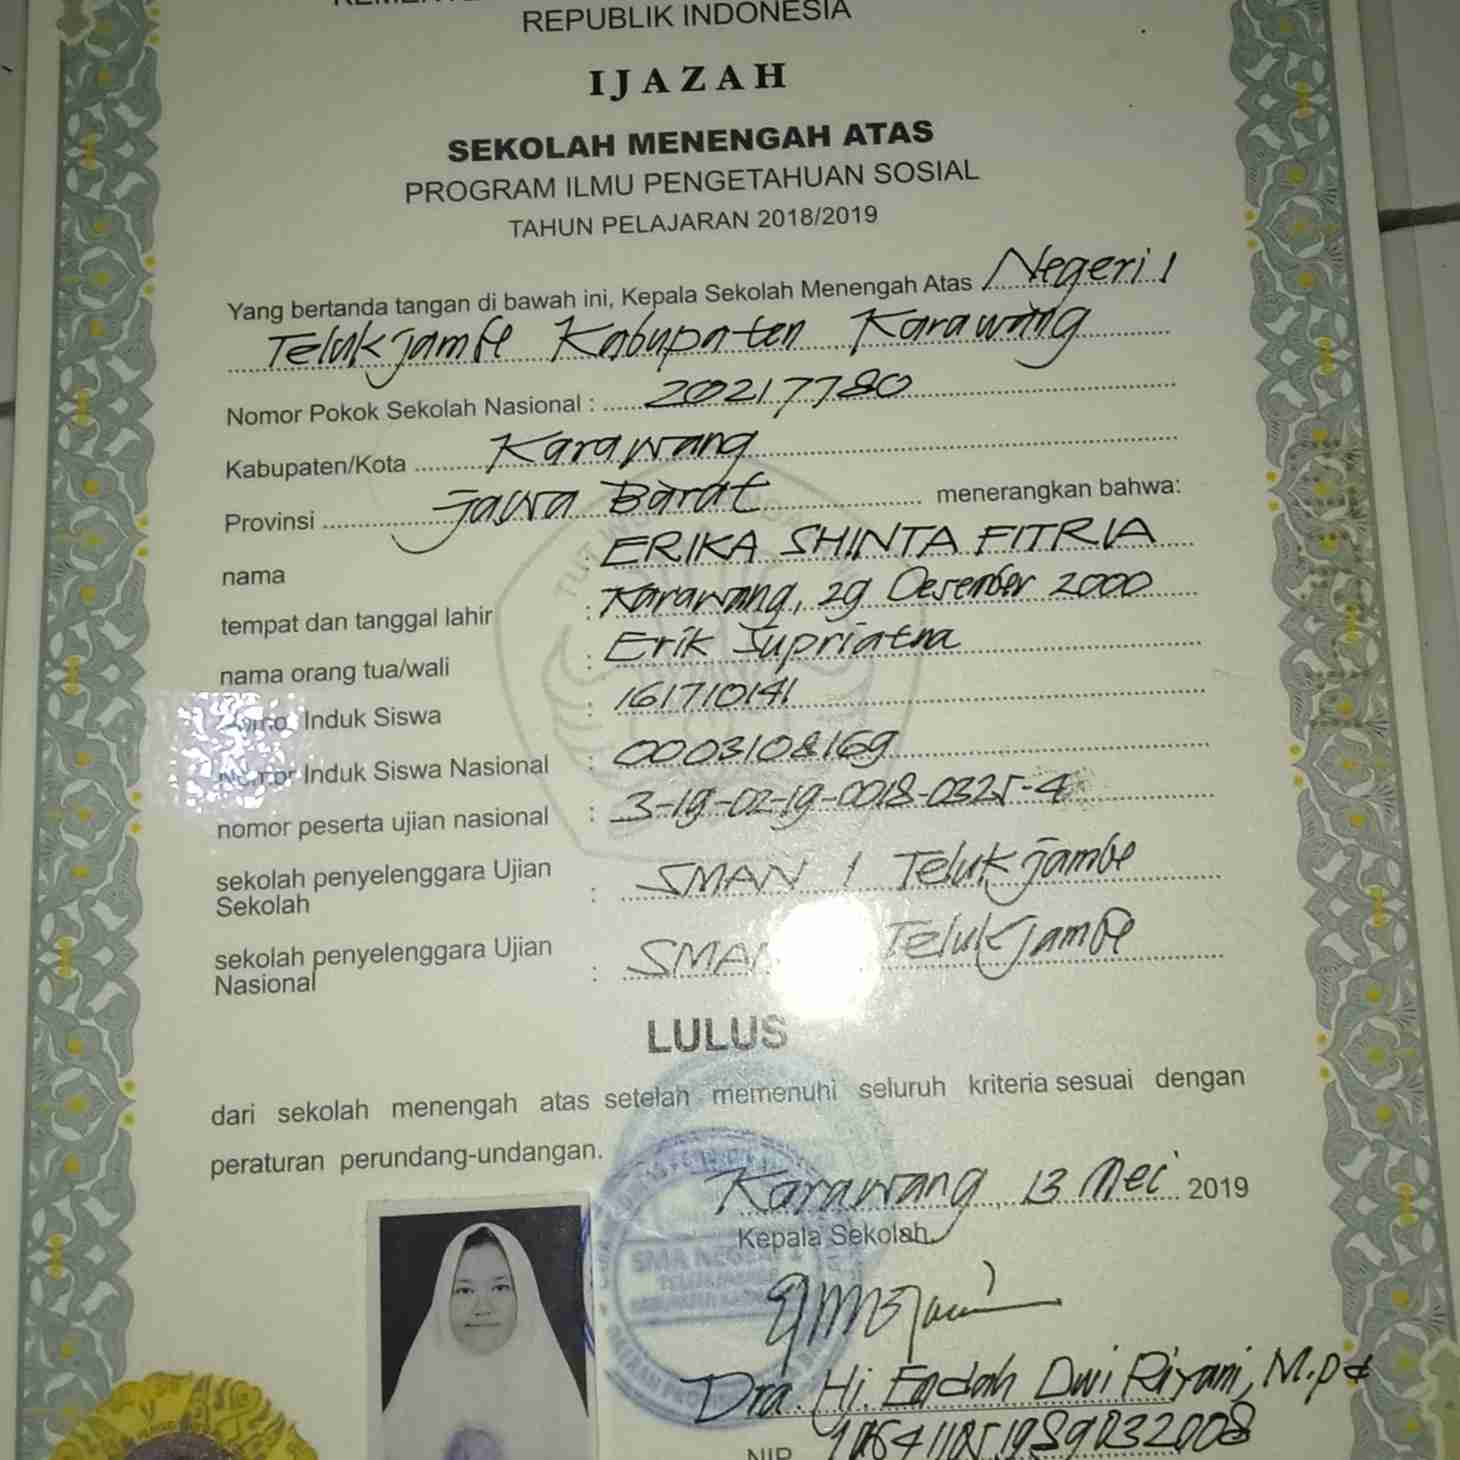 REPUBLIK INDONESIA
IJAZAH
SEKOLAH MENENGAH ATAS
PROGRAM ILMU PENGETAHUAN SOSIAL
TAHUN PELAJARAN 2018/2019
Yang bertanda tangan di bawah ini, Kepala Sekolah Menengah Atas Negeri 1
Telukjambe Kabupaten Karawang
Nomor Pokok Sekolah Nasional : 20217780
Kabupaten/Kota Karawang
Provinsi Jawa Barat menerangkan bahwa:
nama ERIKA SHINTA FITRIA
tempat dan tanggal lahir : Karawang, 29 Desember 2000
nama orang tua/wali : Erik Supriatna
Induk Siswa : 161710141
Nomor Induk Siswa Nasional : 0003108169
nomor peserta ujian nasional : 3-19-02-19-0018-0325-4
sekolah penyelenggara Ujian Sekolah : SMAN 1 Telukjambe
sekolah penyelenggara Ujian Nasional : SMAN Telukjambe
LULUS
dari sekolah menengah atas setelah memenuhi seluruh kriteria sesuai dengan
peraturan perundang-undangan.
Karawang, 13 Mei 2019
Kepala Sekolah,
SMA NEGERI
Dra. Hj. Endah Dwi Riyani, M.Pd
NIP